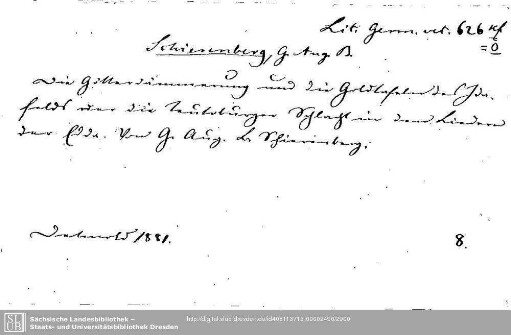 Lit. Germ. vet. 626 xf
= 0
Schierenberg, G. Aug. B.
Die Götterdämmerung und die Goldtafeln des Ida-
felds oder die Teutoburger Schlacht in den Liedern
der Edda. Von G. Aug. B. Schierenberg.
Detmold 1881.
8.
Sächsische Landesbibliothek –
Staats- und Universitätsbibliothek Dresden